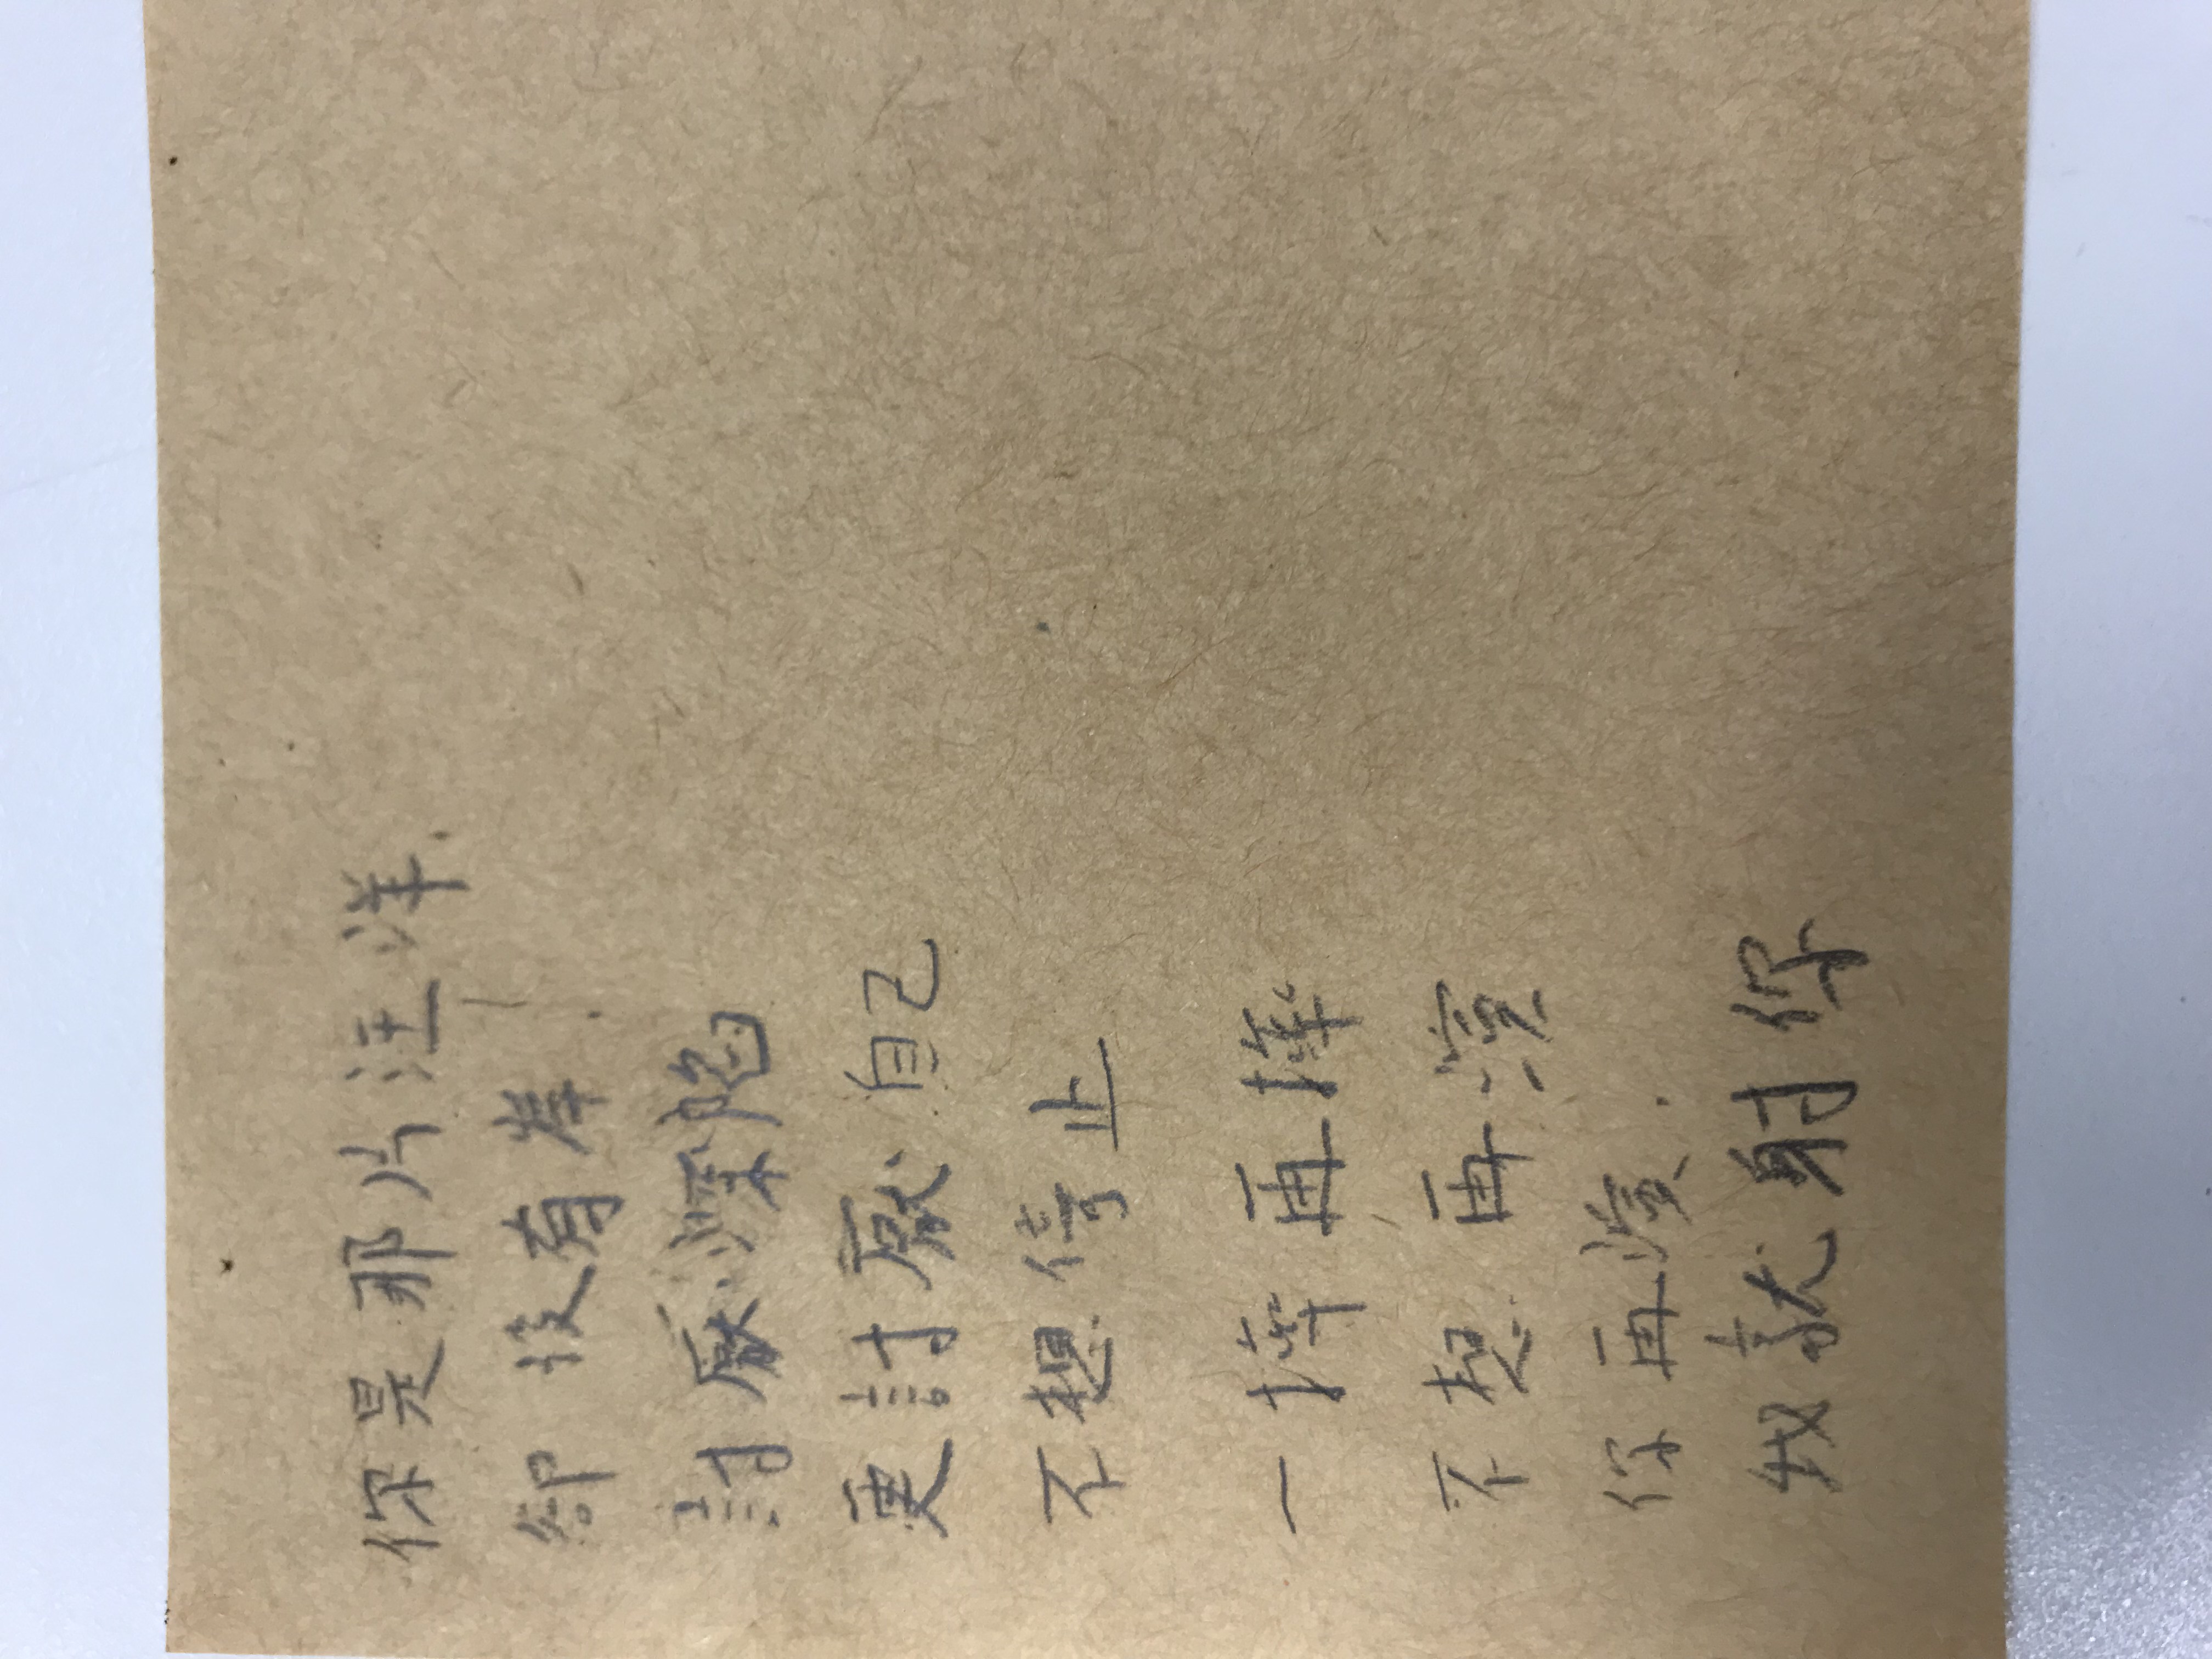 你是那片汪洋.
卻沒有岸.
討厭深陷
更討厭自己
不想停止
一摔再摔
不想再演
你再演.
我就射你